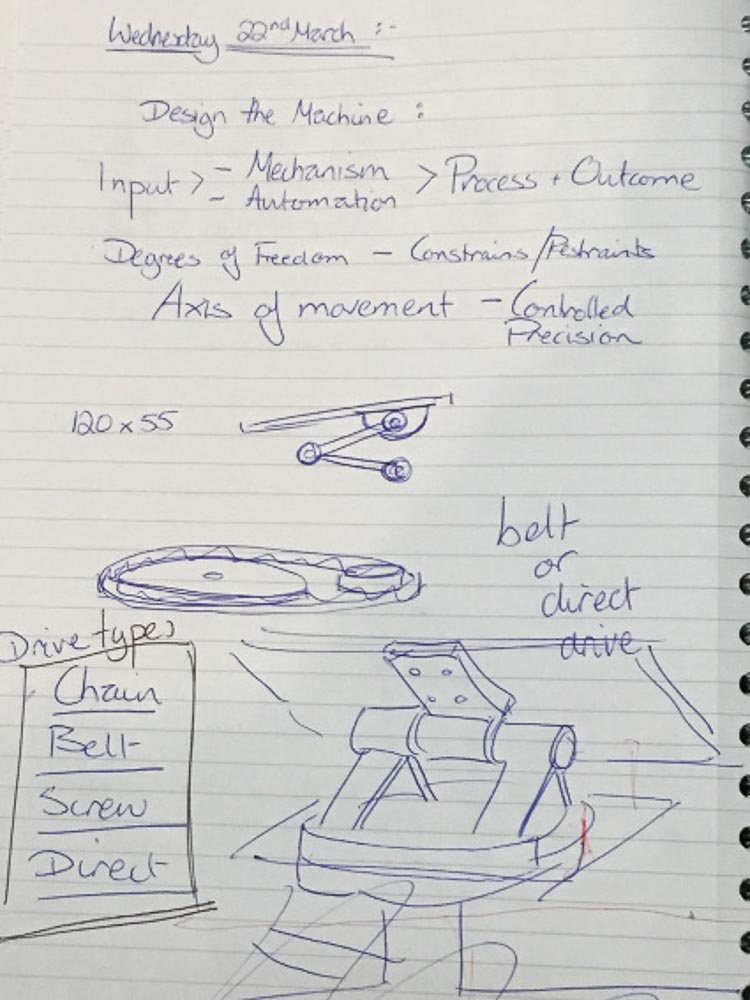 Wednesday 22nd March :-
Design the Machine :
Input > - Mechanism > Process + Outcome
- Automation
Degrees of Freedom - Constrains/Restraints
Axis of movement - Controlled
Precision
120 x 55
belt
or
direct
drive
Drive types
Chain
Belt
Screw
Direct